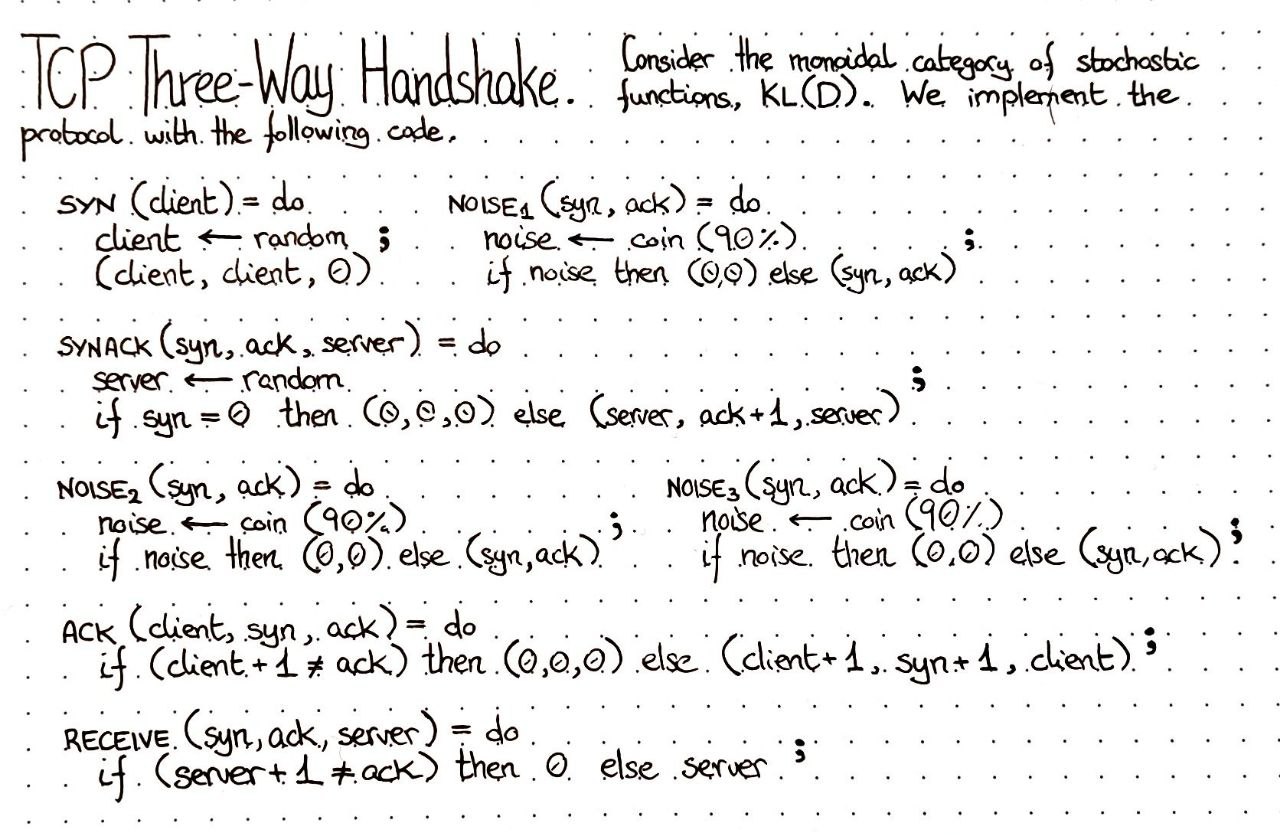 TCP Three-Way Handshake. Consider the monoidal category of stochastic
functions, KL(D). We implement the
protocol with the following code.
SYN (client) = do
client ← random ;
(client, client, 0)
NOISE1 (syn, ack) = do
noise ← coin (90%) ;
if noise then (0,0) else (syn, ack)
SYNACK (syn, ack, server) = do
server ← random ;
if syn = 0 then (0,0,0) else (server, ack+1, server)
NOISE2 (syn, ack) = do
noise ← coin (90%) ;
if noise then (0,0) else (syn,ack)
NOISE3 (syn, ack) = do
noise ← coin (90%) ;
if noise then (0,0) else (syn, ack)
ACK (client, syn, ack) = do
if (client + 1 ≠ ack) then (0,0,0) else (client+1, syn+1, client) ;
RECEIVE (syn, ack, server) = do
if (server + 1 ≠ ack) then 0 else server ;